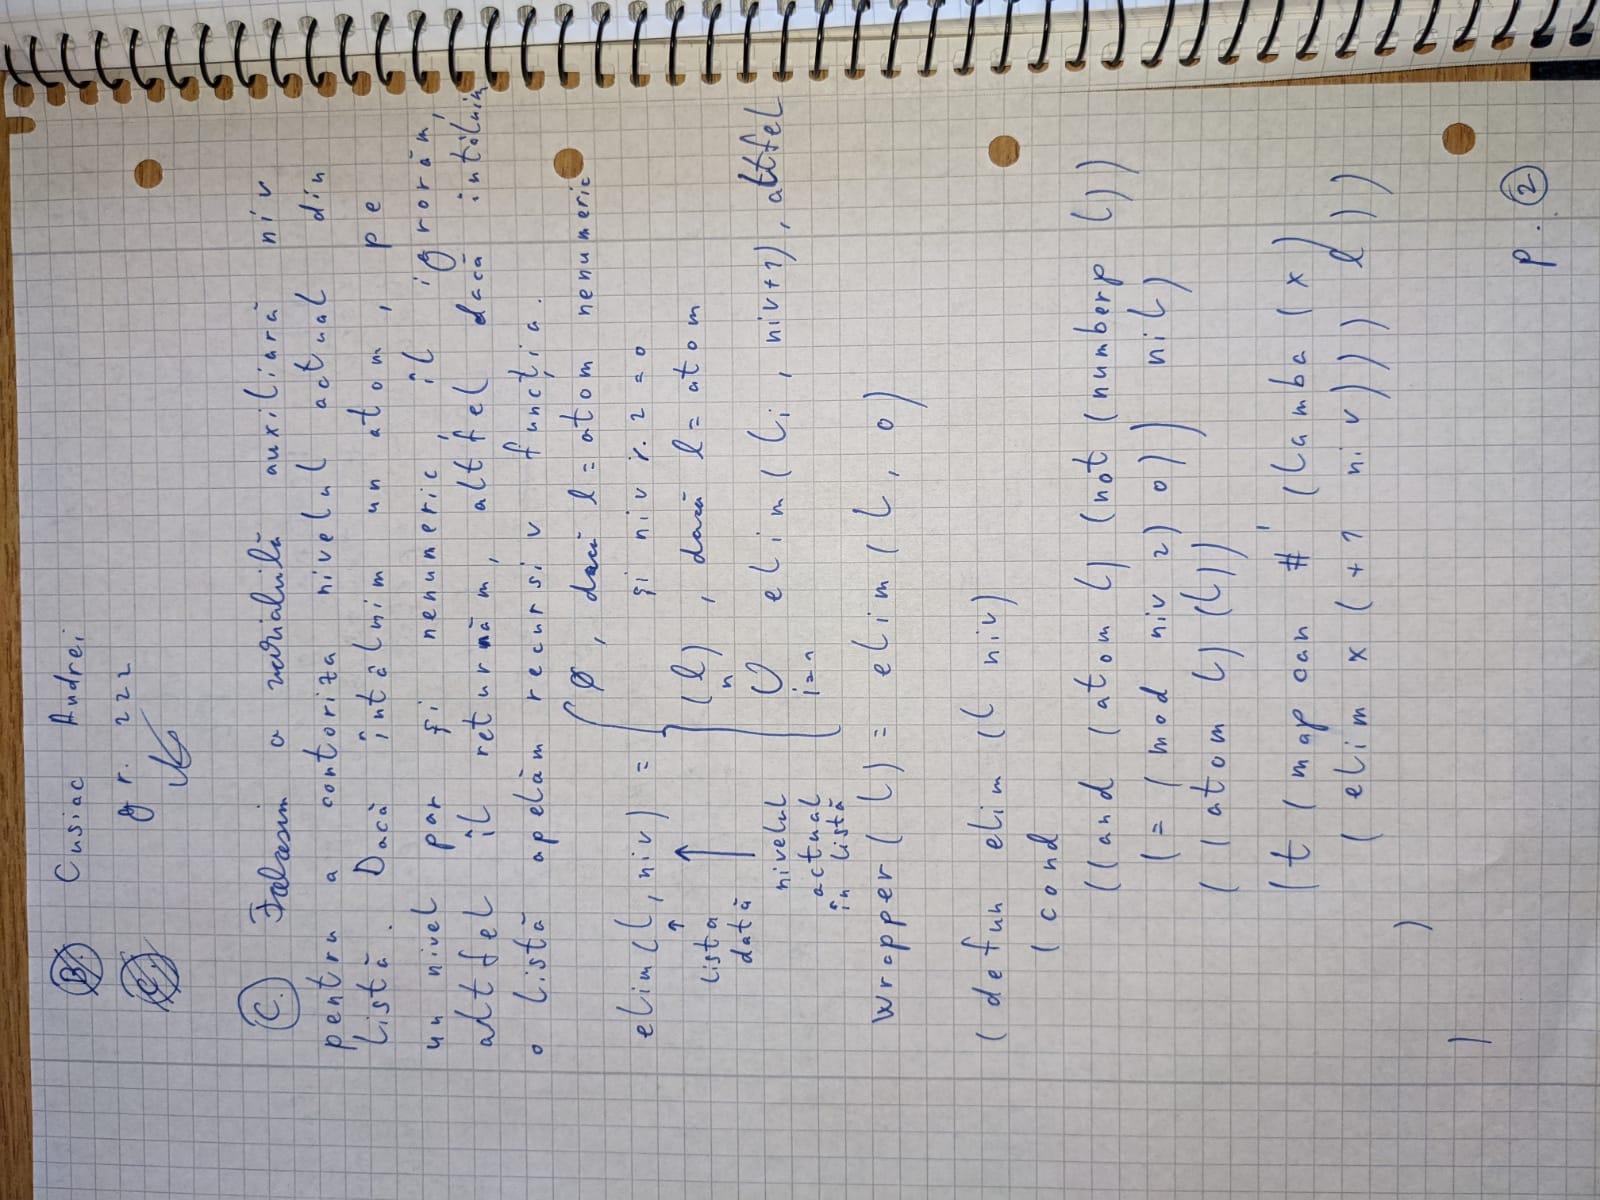 B. Cusiac Andrei
C. gr. 222
C. Folosim o variabilă auxiliară niv
pentru a contoriza nivelul actual din
listă. Dacă întâlnim un atom, pe
un nivel par și nenumeric îl ignorăm,
altfel îl returnăm, altfel dacă întâlnim
o listă apelăm recursiv funcția.
∅, dacă l = atom nenumeric
și niv r. 2 = 0
elim(l, niv) = (l), dacă l = atom
n
∪ elim(li, niv+1), altfel
i=1
lista
dată
nivelul
actual
în listă
Wrapper(l) = elim(l, 0)
(defun elim (l niv)
(cond
((and (atom l) (not (numberp l))
(= (mod niv 2) 0)) nil)
((atom l) (l))
(t (mapcan #' (lamba (x)
(elim x (+1 niv))) l))
)
)
p. 2